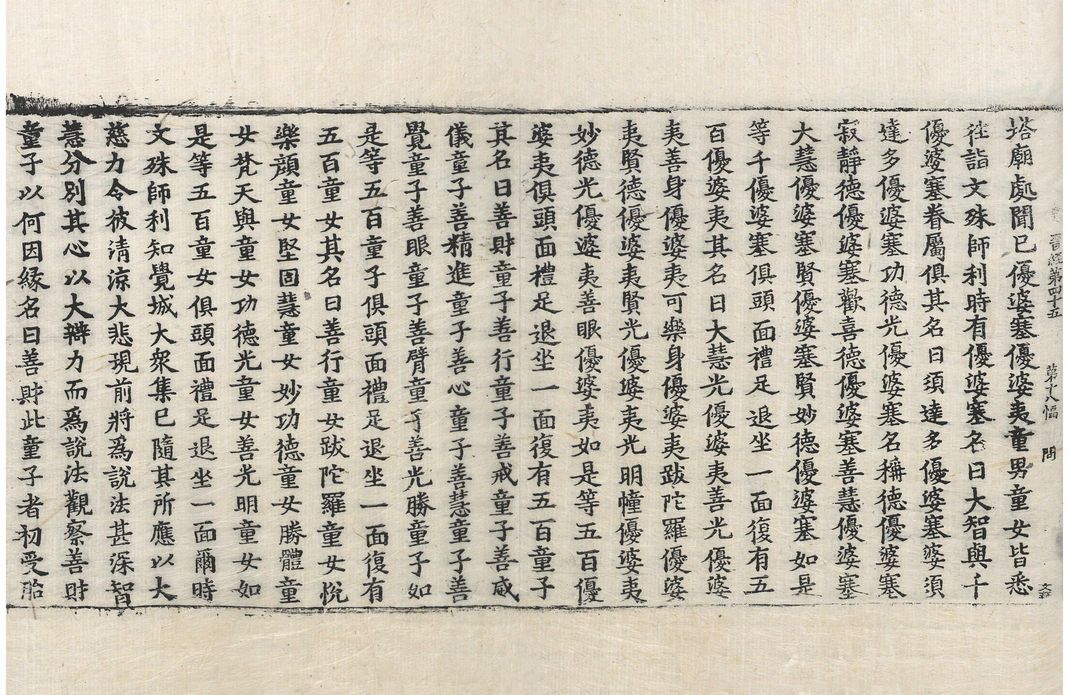 塔廟處聞已優婆塞優婆夷童男童女皆悉
晉經第四十五　第十八幅　問
往詣文殊師利時有優婆塞名曰大智與千
優婆塞眷屬俱其名曰須達多優婆塞婆須
達多優婆塞功德光優婆塞名稱德優婆塞
寂靜德優婆塞歡喜德優婆塞善慧優婆塞
大慧優婆塞賢優婆塞賢妙德優婆塞如是
等千優婆塞俱頭面禮足退坐一面復有五
百優婆夷其名曰大慧光優婆夷善光優婆
夷善身優婆夷可樂身優婆夷跋陀羅優婆
夷賢德優婆夷賢光優婆夷光明幢優婆夷
妙德光優婆夷善眼優婆夷如是等五百優
婆夷俱頭面禮足退坐一面復有五百童子
其名曰善財童子善行童子善戒童子善威
儀童子善精進童子善心童子善慧童子善
覺童子善眼童子善臂童子善光勝童子如
是等五百童子俱頭面禮足退坐一面復有
五百童女其名曰善行童女跋陀羅童女悅
樂顏童女堅固慧童女妙功德童女勝體童
女梵天與童女功德光童女善光明童女如
是等五百童女俱頭面禮足退坐一面爾時
文殊師利知覺城大衆集已隨其所應以大
慈力令彼清涼大悲現前將爲說法甚深智
慧分別其心以大辯力而爲說法觀察善財
童子以何因緣名曰善財此童子者初受胎